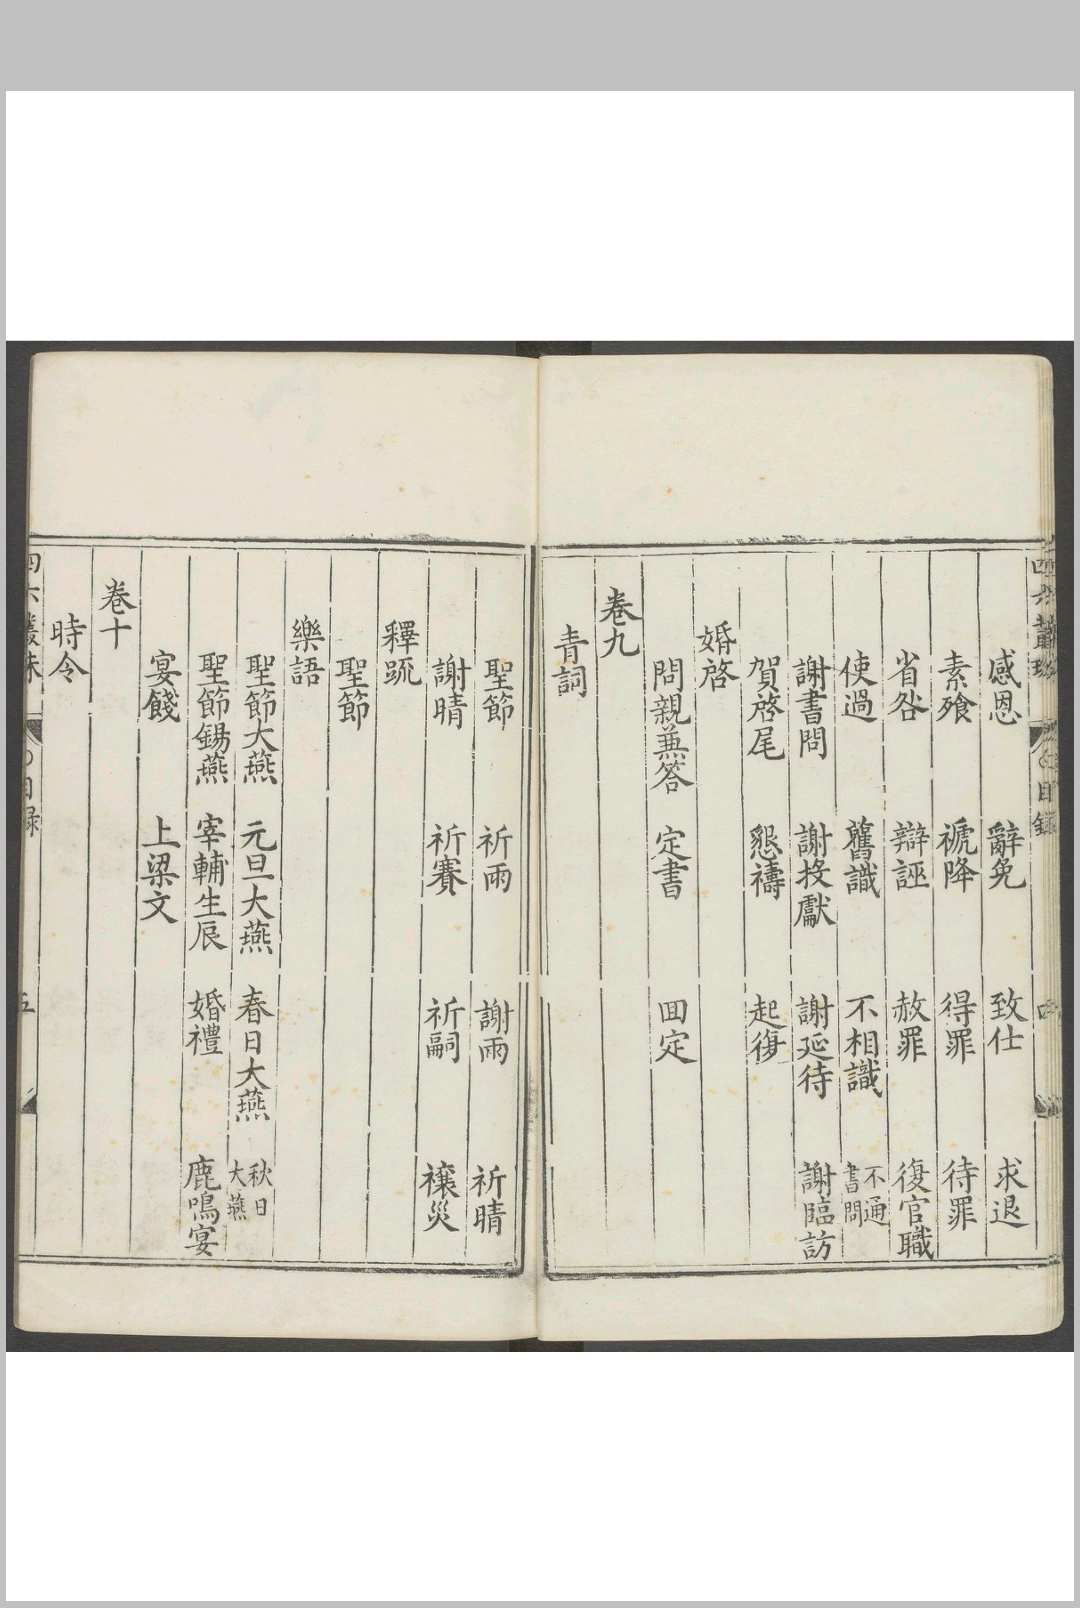 感恩　辭免　致仕　求退
素飱　褫降　得罪　待罪
省咎　辯誣　赦罪　復官職
使過　舊識　不相識　不通書問
謝書問　謝投獻　謝延待　謝臨訪
賀啓尾　懇禱　起復
婚啓
問親兼答　定書　回定
卷九
青詞
聖節　祈雨　謝雨　祈晴
謝晴　祈賽　祈嗣　禳災
釋䟽
聖節
樂語
聖節大燕　元旦大燕　春日大燕　秋日大燕
聖節錫燕　宰輔生辰　婚禮　鹿鳴宴
宴餞　上梁文
卷十
時令
目録
五